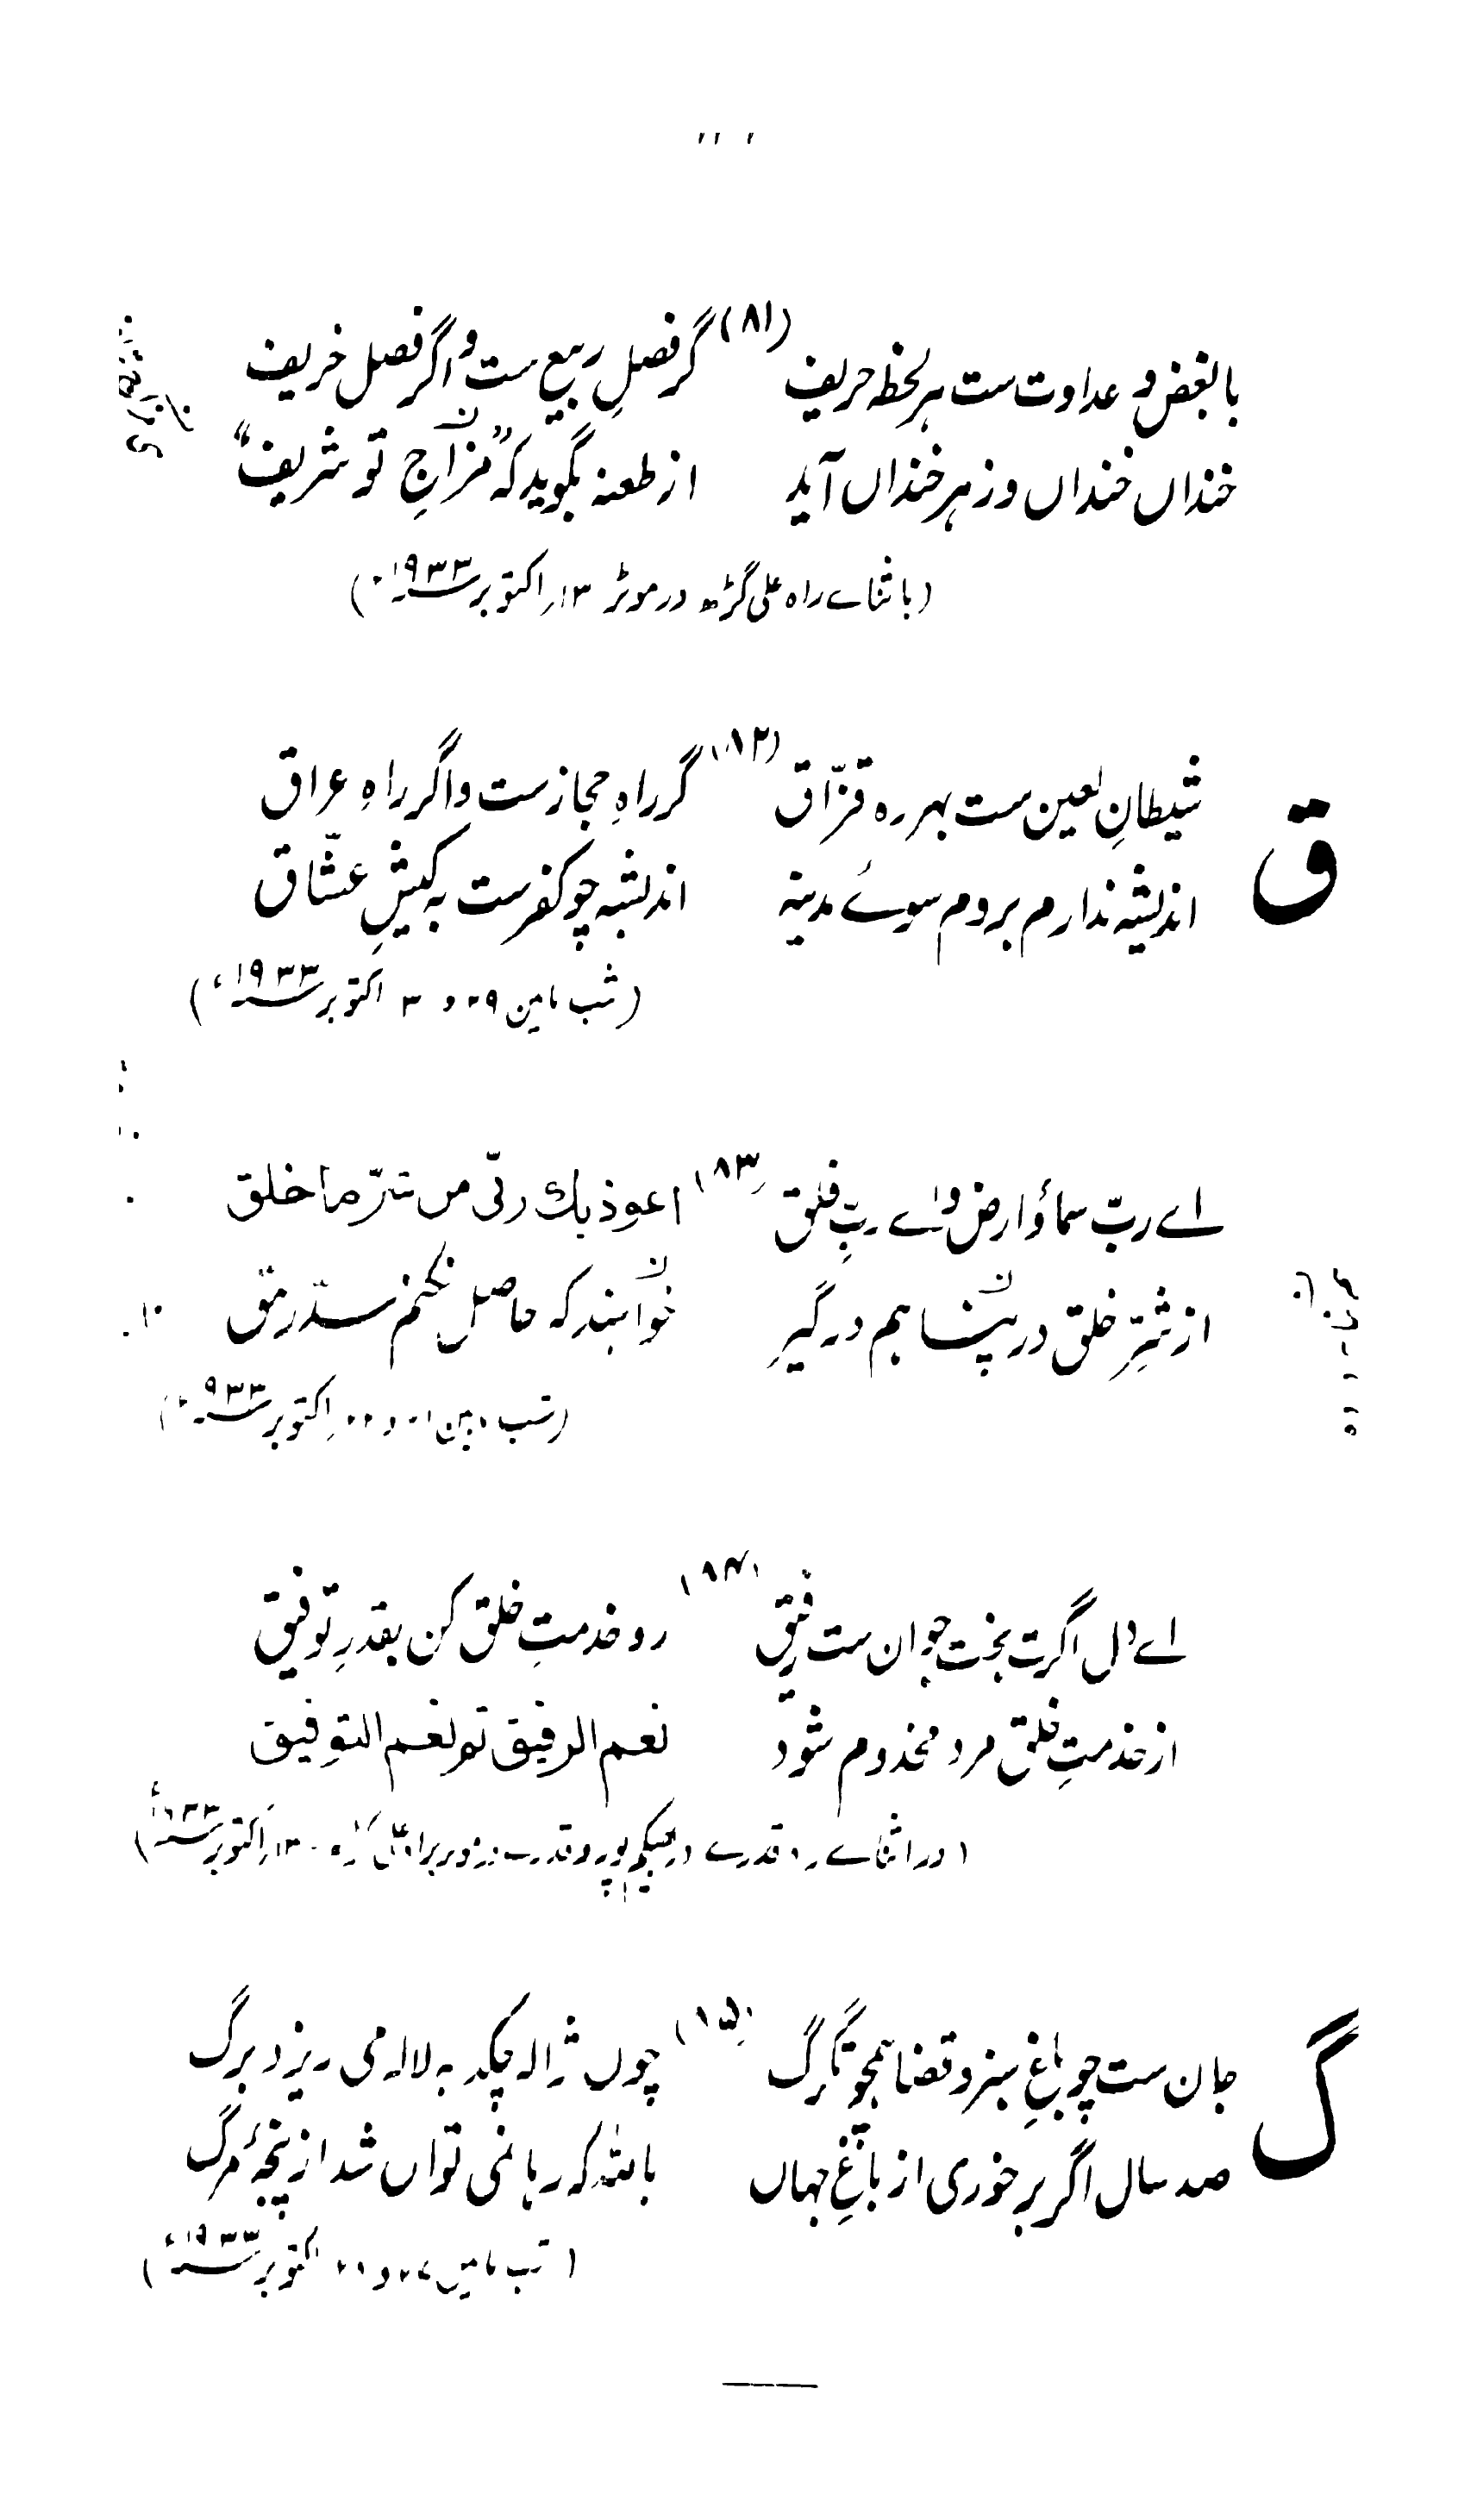 (۸۱)
با بغض و عداوت ست ہر لحظہ حریف گر فصلِ ربیع ست و اگر فصل خریف
خنداں خنداں و زہر خنداں آید از طعنہ بگوید کہ "مزاجِ تو شریف"
(باثنائے راہ علی گڑھ در موٹر ۱۳ اکتوبر ۱۹۳۳ء)
ق
(۸۲)
شیطانِ لعین ست بہر رہ قزّاق گر راہِ حجاز ست و اگر راہِ عراق
اندیشہ ندارم بروم سوئے مدینہ اندیشہ چو کفر ست بہ کیشِ عشّاق
(شب مابین ۲۹ و ۳۰ اکتوبر ۱۹۳۳ء)
(۸۳)
اے ربّ سما و ارض و اے ربِّ فلق اعوذ بك ربّی من شرّ ما خلق
از شرِّ خلق در پناہم در گیر
اکتوبر ۱۹۳۳ء)
(۸۴)
اے دل اگرت بخت جوان ست رفیق رو خدمتِ خلق کن بقدرِ توفیق
از خدمتِ خلق مرد مخدوم شود نعم الرفیق ثم نعم التوفیق
(در اثنائے قدرے در و قدرے اکتوبر ۱۹۳۳ء)
گ
(۸۵)
جان ست چو باغِ سبز و قضا ہمچو تگرگ چوں ژالہ چکد بہ لالہ می ریزد برگ
صد سال اگر بر خوری از باغِ جہاں باللہ کہ رہا نمی تواں شد از پنجۂ مرگ
(شب مابین اکتوبر ۱۹۳۳ء)